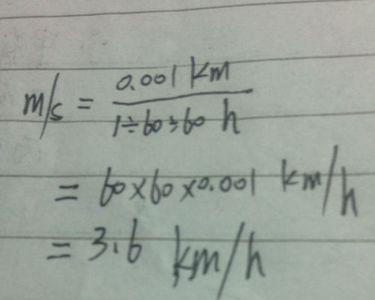 m/s = 0.001 km
1÷60÷60 h
= 60×60×0.001 km/h
= 3.6 km/h